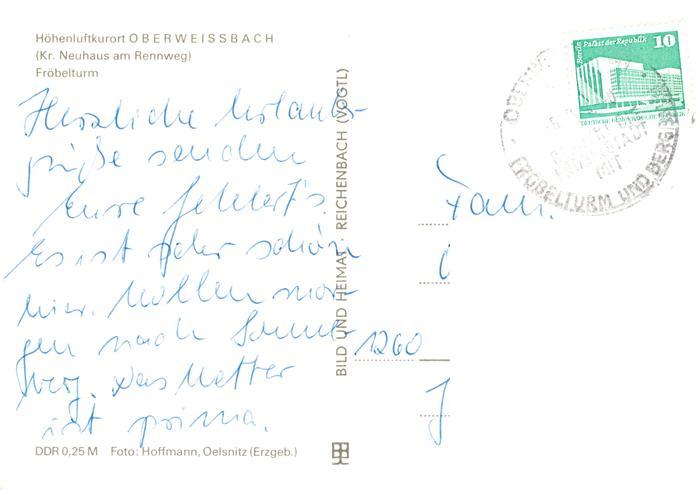 Höhenluftkurort OBERWEISSBACH
(Kr. Neuhaus am Rennweg)
Fröbelturm
Herzliche Urlaubs-
grüße senden
Eure Gehlert's.
Es ist sehr schön
hier. Wollen mor-
gen nach Sonne-
berg. Das Wetter
ist prima.
DDR 0,25 M Foto: Hoffmann, Oelsnitz (Erzgeb.)
BILD UND HEIMAT REICHENBACH (VOGTL)
Berlin Palast der Republik 10
DEUTSCHE DEMOKRATISCHE REPUBLIK
MIT
FRÖBELTURM UND BERGBAHN
Fam.
1260